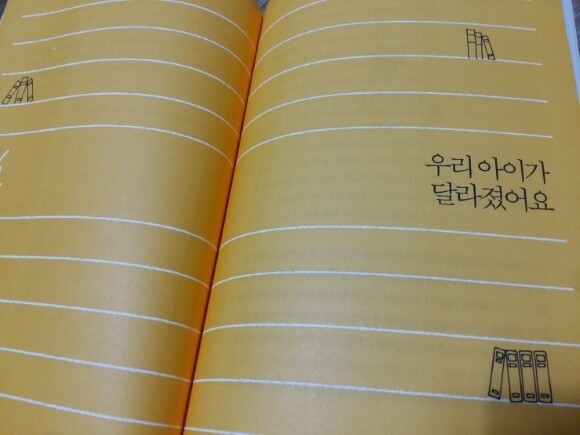 우리 아이가
달라졌어요